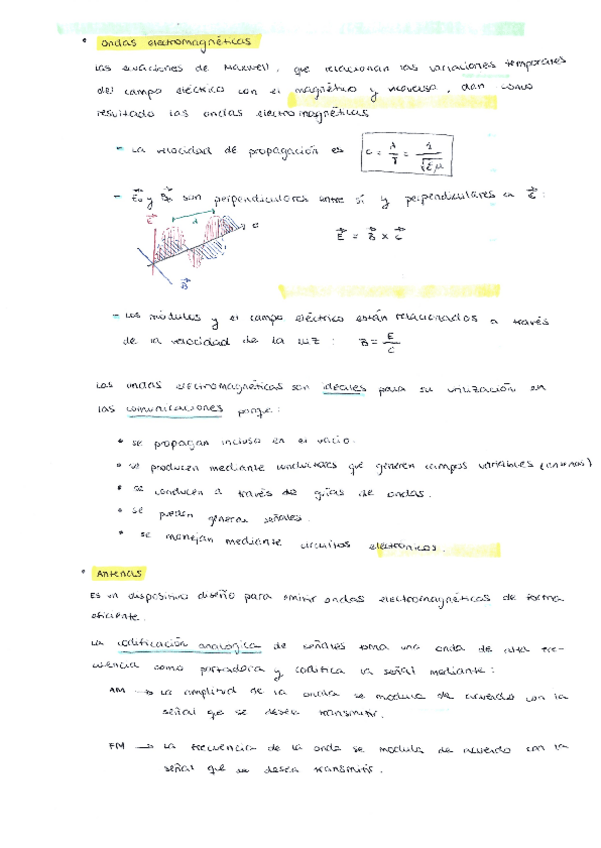 • Ondas electromagnéticas
Las ecuaciones de Maxwell, que relacionan las variaciones temporales
del campo eléctrico con el magnético y viceversa, dan como
resultado las ondas electromagnéticas
- La velocidad de propagación es c = λ/T = 1/√εμ
- E⃗ y B⃗ son perpendiculares entre sí y perpendiculares a c⃗ :
E⃗ λ c
E⃗ = B⃗ × c⃗
B⃗
- Los módulos y el campo eléctrico están relacionados a través
de la velocidad de la luz : B = E/c
Las ondas electromagnéticas son ideales para su utilización en
las comunicaciones porque :
• se propagan incluso en el vacío.
• se producen mediante conductores que generen campos variables (antenas)
• se conducen a través de guías de ondas.
• se pueden generar señales.
• se manejan mediante circuitos electrónicos.
• Antenas
Es un dispositivo diseño para emitir ondas electromagnéticas de forma
eficiente.
La codificación analógica de señales toma una onda de alta fre-
cuencia como portadora y codifica la señal mediante :
AM → La amplitud de la onda se modula de acuerdo con la
señal que se desea transmitir.
FM → La frecuencia de la onda se modula de acuerdo con la
señal que se desea transmitir.